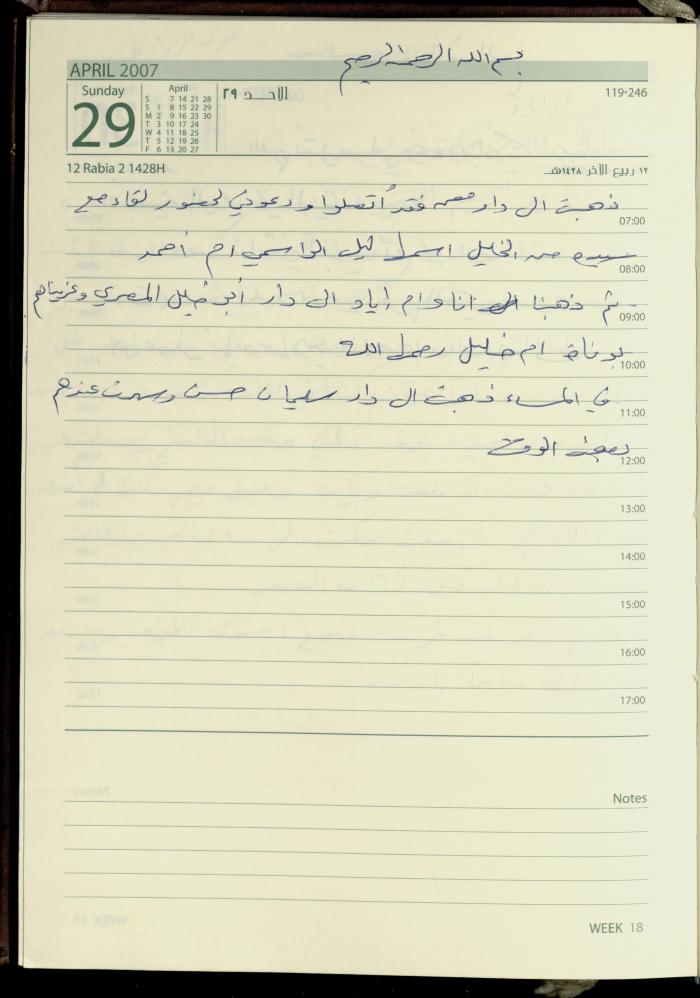 بسم الله الرحمن الرحيم
APRIL 2007
Sunday
29
April
S 7 14 21 28
S 1 8 15 22 29
M 2 9 16 23 30
T 3 10 17 24
W 4 11 18 25
T 5 12 19 26
F 6 13 20 27
الاحـــد ٢٩
119-246
12 Rabia 2 1428H
١٢ ربيع الآخر ١٤٢٨هـ
ذهبت الى دار فقد أتصلوا ودعوني لحضور لقاء مع
07:00
سيدة من الخليل اسمها ليلى ام أحمد
08:00
ثم ذهبنا انا وام اياد الى دار أبو خليل المصري وعزيناهم
09:00
بوفاة ام خليل رحمها الله
10:00
في المساء ذهبت الى دار سليمان حسن وسهرت عندهم
11:00
بعض الوقت
12:00
13:00
14:00
15:00
16:00
17:00
Notes
WEEK 18